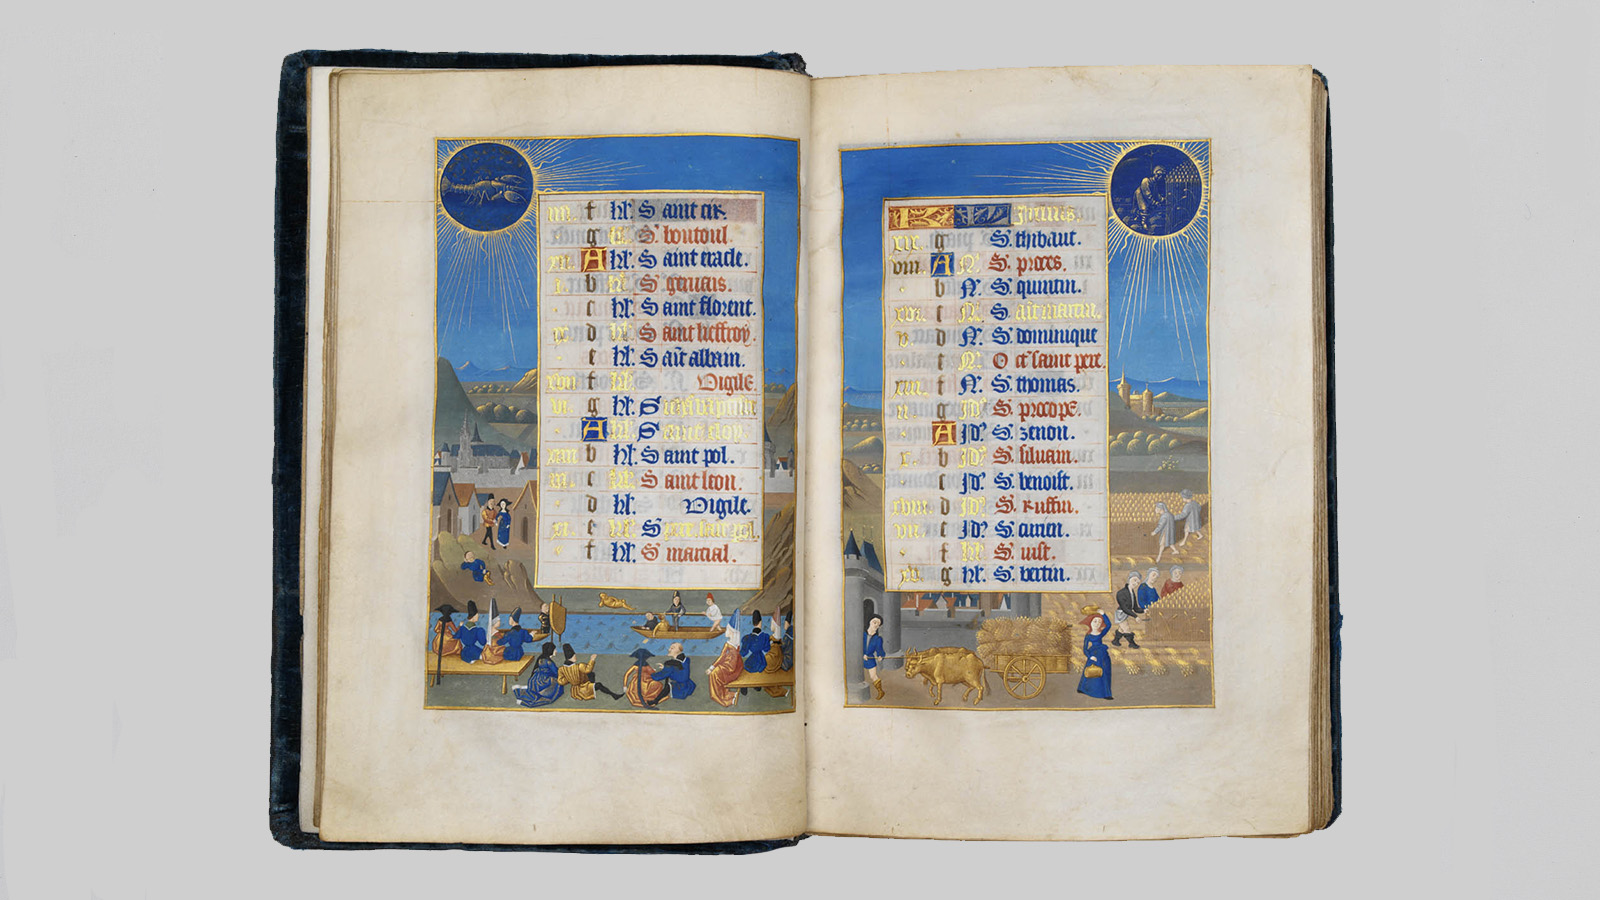 iiii. f kl'. Saint cir.
g kl'. S. boutoul
xii. A kl'. Saint eracle.
i. b kl'. S. geruais.
c kl'. Saint florent.
ix d kl'. Saint lieffroy.
e kl'. Saīt albain.
xvii f kl'. Vigile.
vi. g kl'. S.
A kl'. Saint eloy.
xiiii b kl'. Saint pol.
iii. c kl'. Saint leon.
d kl'. Vigile.
xi. e kl'. S.
f kl'. S. marcial.
Julius.
xix. g S. thibaut.
viii. A N. S. proces.
b N. S. quintin.
xvi. c N. S. aīt martin.
v. d N. S. dominique
e N. O ct' saint pere.
xiii. f N. S. thomas.
ii. g Jd'. S. procope.
A Jd'. S. zenon.
x. b Jd'. S. siluain.
c Jd'. S. benoist.
xviii d Jd'. S. Ruffin.
vii. e Jd'. S.
f kl'. S. iust.
xv. g kl'. S. bertin.